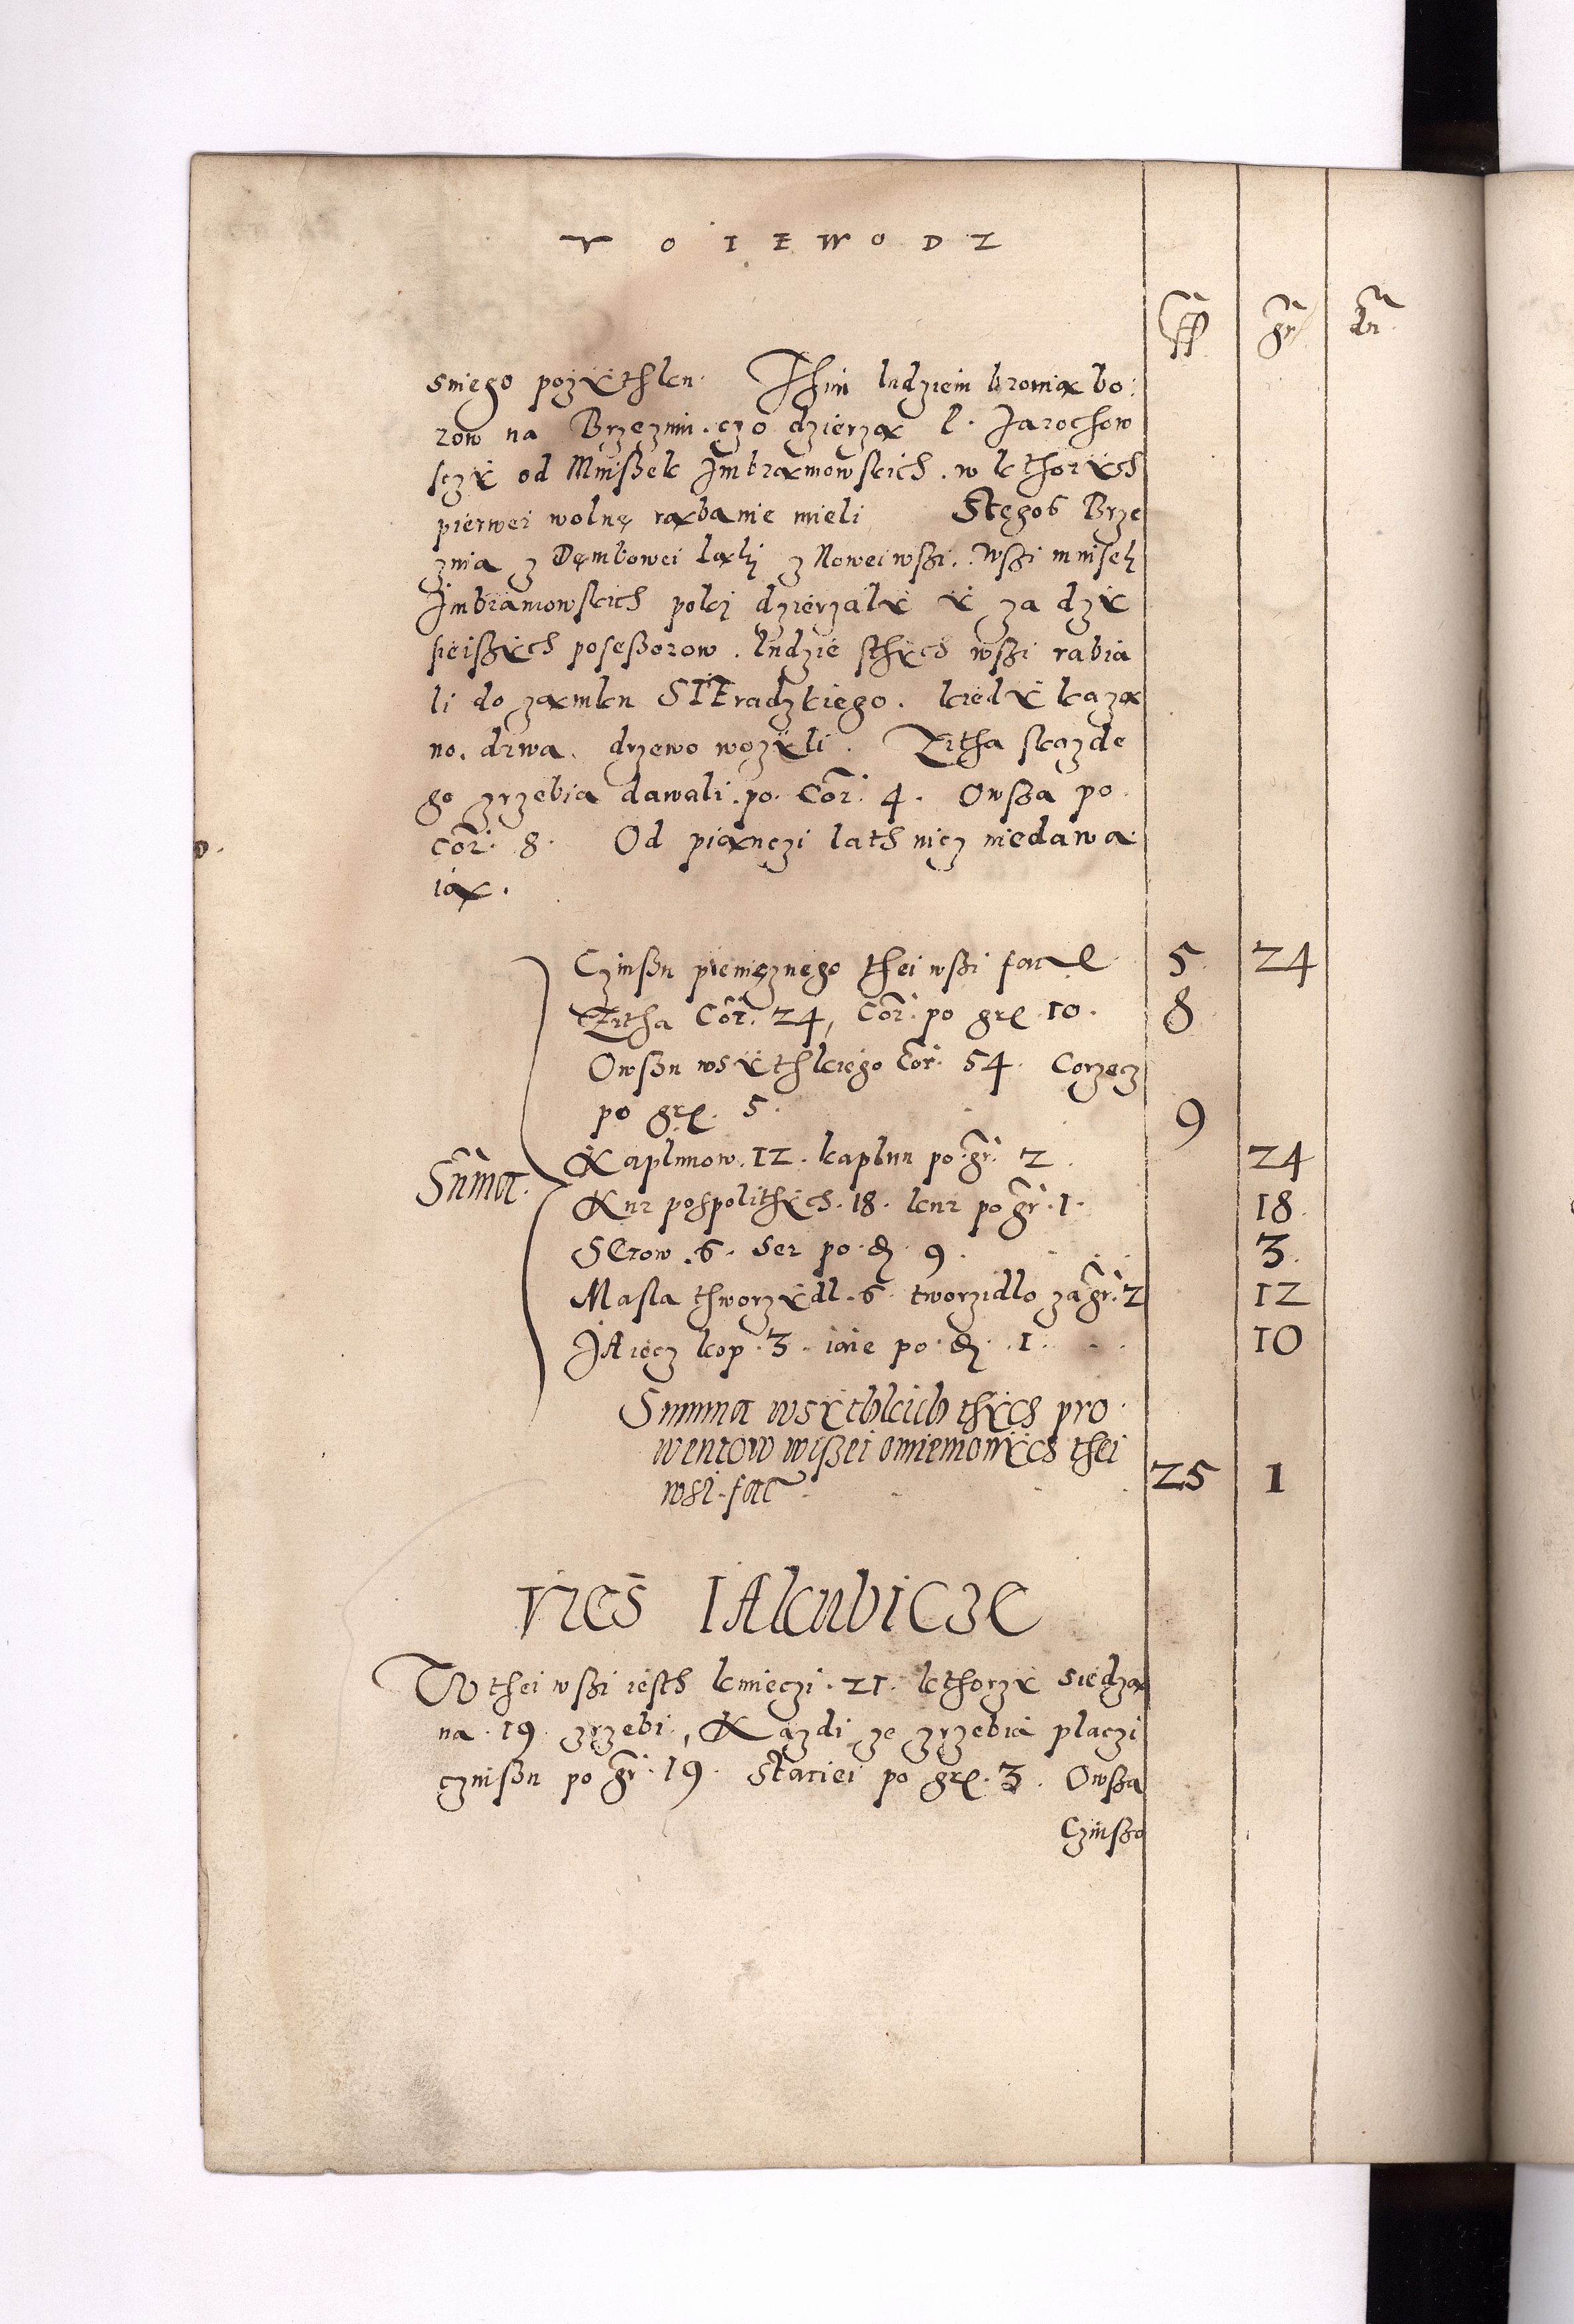 VOIEWODZ
fl gr dn
sniego pozÿthku. Thim ludziem bronią bo:
row na Brzezini. czo dzierzą P. Jarochow
sczÿ od Mnißek Jmbramowskich. w kthorÿch
pierwei wolnę rąbanie mieli Stegoß Brze
znia z Dęmbowei Łąki z Nowei wßi. Wßi mnisek
Jmbramowskich polej dzierzałÿ ÿ za dzÿ
sieißÿch poseßorow. ludzie sthÿch wßi rabia
li do zamku SIEradzkiego. kiedÿ kaza
no. drwa. drzewo wozÿli. Żitha skażde
go zrzebia dawali. po. Cor. 4. Owßa po
Cor. 8. Od piąnczi lath nicz niedawa
ią.
Czinßu pienięznego thei wßi fac 5 24
Żitha Cor. 24, Cor. po gr. 10. 8
Owßu wsÿthkiego Cor. 54. Corzecz
po gr. 5. 9
Suma.
Kapłunow. 12. kapłun po gr. 2 24
Kur pospolithÿch. 18. kur po gr. 1. 18
SErow. 6. Ser po. d. 9. 3.
Masla thworzÿdl. 6. tworzidlo za gr. 2 12
JAiecz kop. 3. iaie po. d. 1. 10
Summa wsÿthkich thÿch pro
wentow wißei omiemonÿch thei
wsi. fac 25 1
VIES IAkubicze
W thei wßi iesth kmieczi. 21. kthorzÿ siedzą
na. 19. zrzebi, Kazdi ze zrzebia placzi
czinßu po gr. 19. Staciei po gr. 3. Owßa
Czinßo